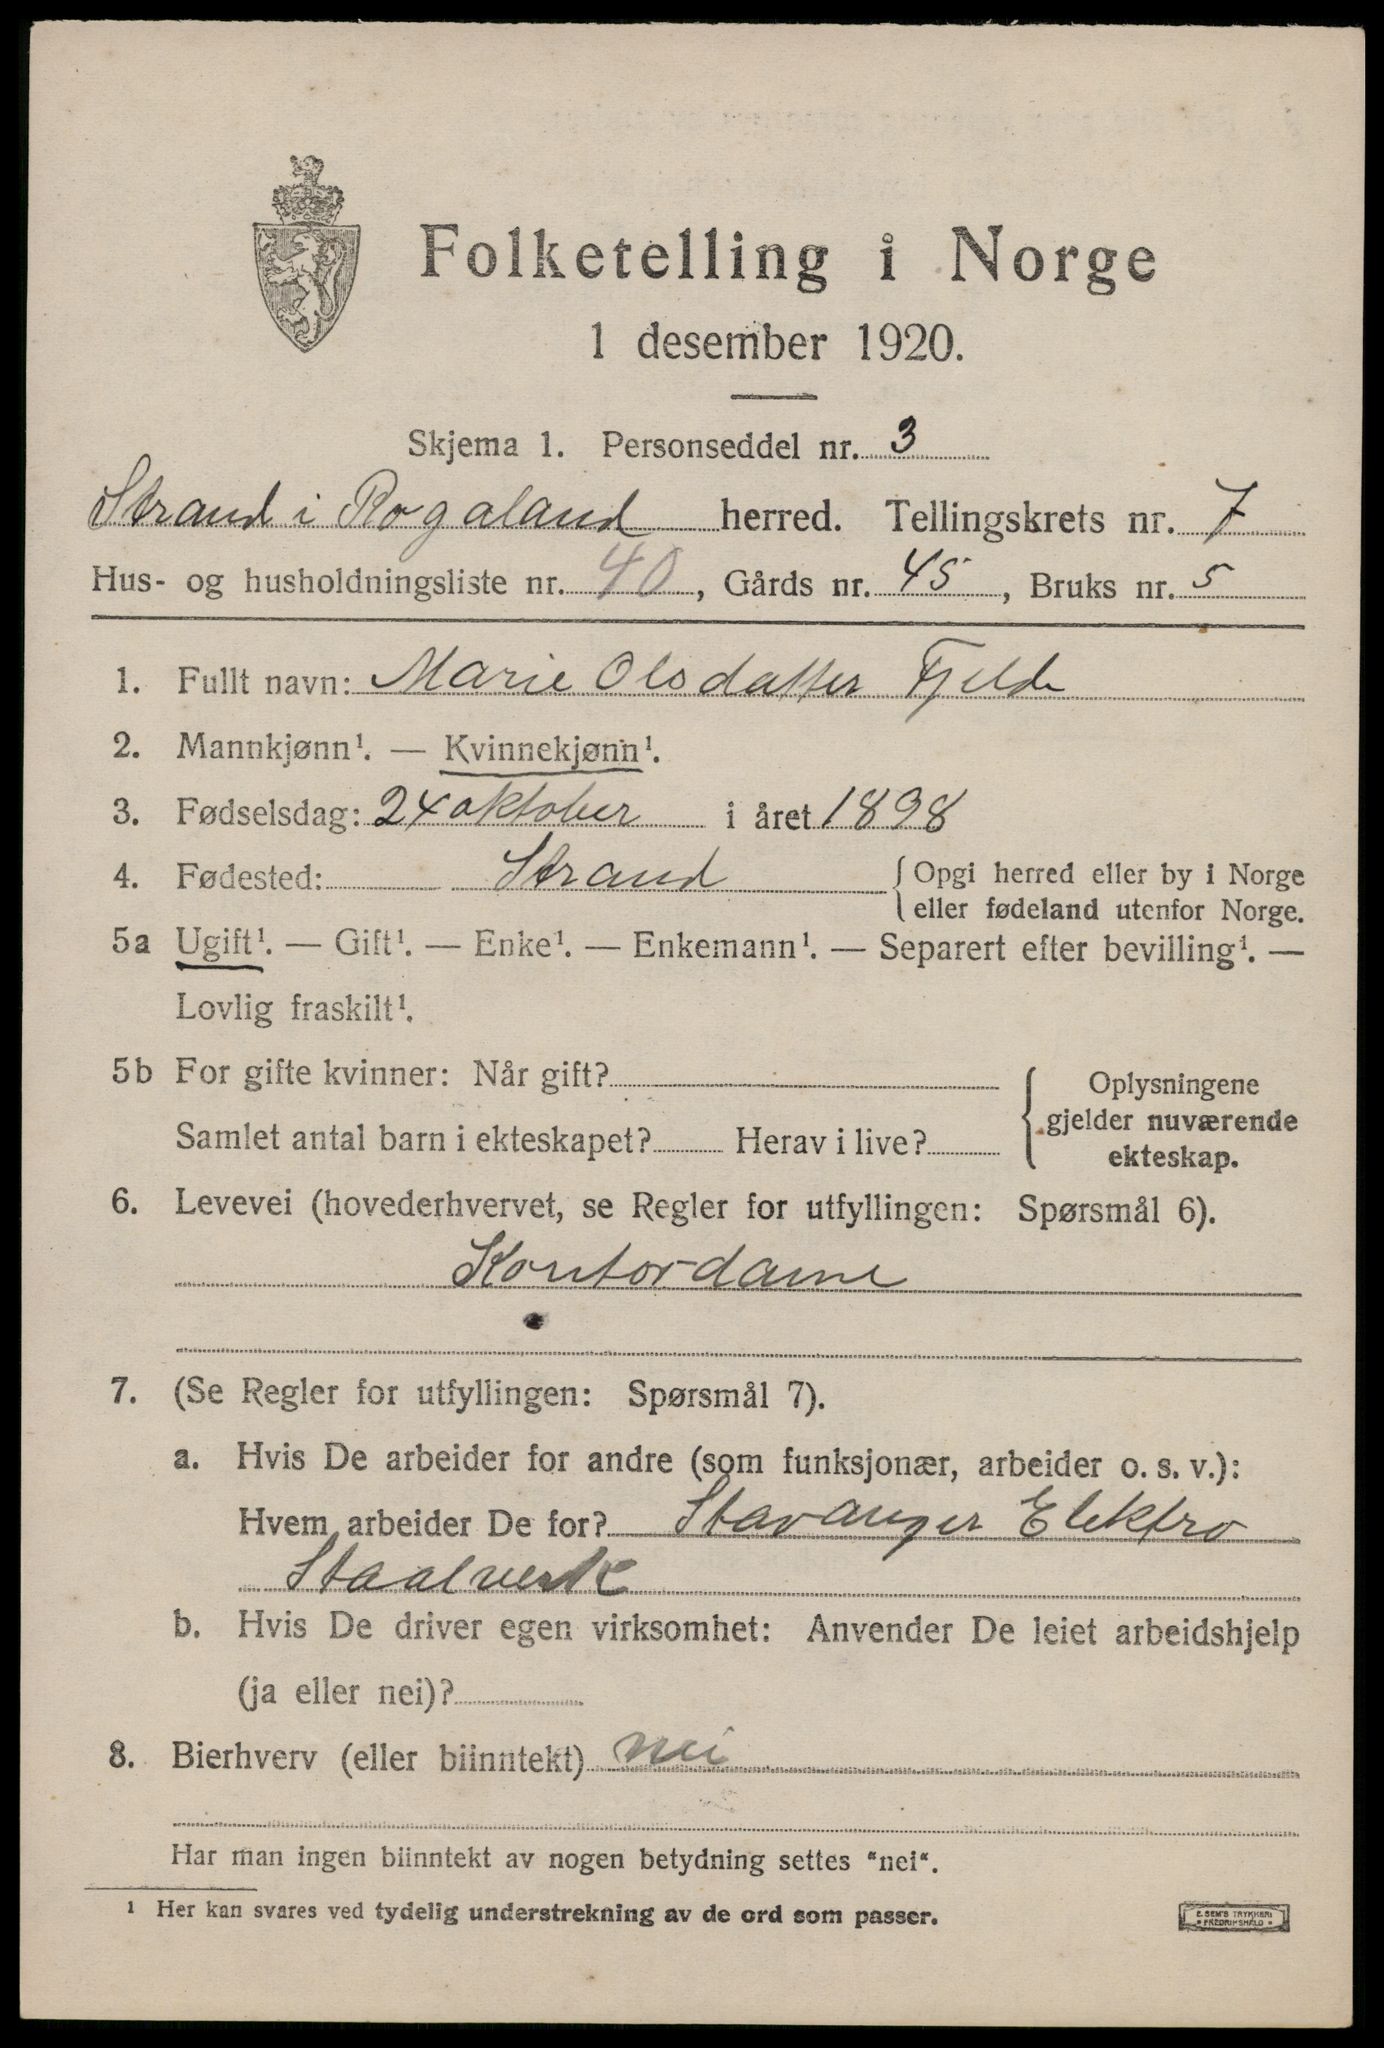 Folketelling i Norge
1 desember 1920.
Skjema 1. Personseddel nr. 3
Strand i Rogaland herred. Tellingskrets nr. 7
Hus- og husholdningsliste nr. 40, Gårds nr. 45, Bruks nr. 5
1. Fullt navn: Marie Olsdatter Fjelde
2. Mannkjønn¹. — Kvinnekjønn¹.
3. Fødselsdag: 24 oktober i året 1898
4. Fødested: Strand { Opgi herred eller by i Norge
eller fødeland utenfor Norge.
5a Ugift¹. — Gift¹. — Enke¹. — Enkemann¹. — Separert efter bevilling¹. —
Lovlig fraskilt¹.
5b For gifte kvinner: Når gift?
Samlet antal barn i ekteskapet? Herav i live?
{ Oplysningene
gjelder nuværende
ekteskap.
6. Levevei (hovederhvervet, se Regler for utfyllingen: Spørsmål 6).
Kontordame
7. (Se Regler for utfyllingen: Spørsmål 7).
a. Hvis De arbeider for andre (som funksjonær, arbeider o. s. v.):
Hvem arbeider De for? Stavanger Elektro
Staalverk
b. Hvis De driver egen virksomhet: Anvender De leiet arbeidshjelp
(ja eller nei)?
8. Bierhverv (eller biinntekt) nei
Har man ingen biinntekt av nogen betydning settes "nei".
¹ Her kan svares ved tydelig understrekning av de ord som passer.
E. SEM'S TRYKKERI
• FREDRIKSHALD •